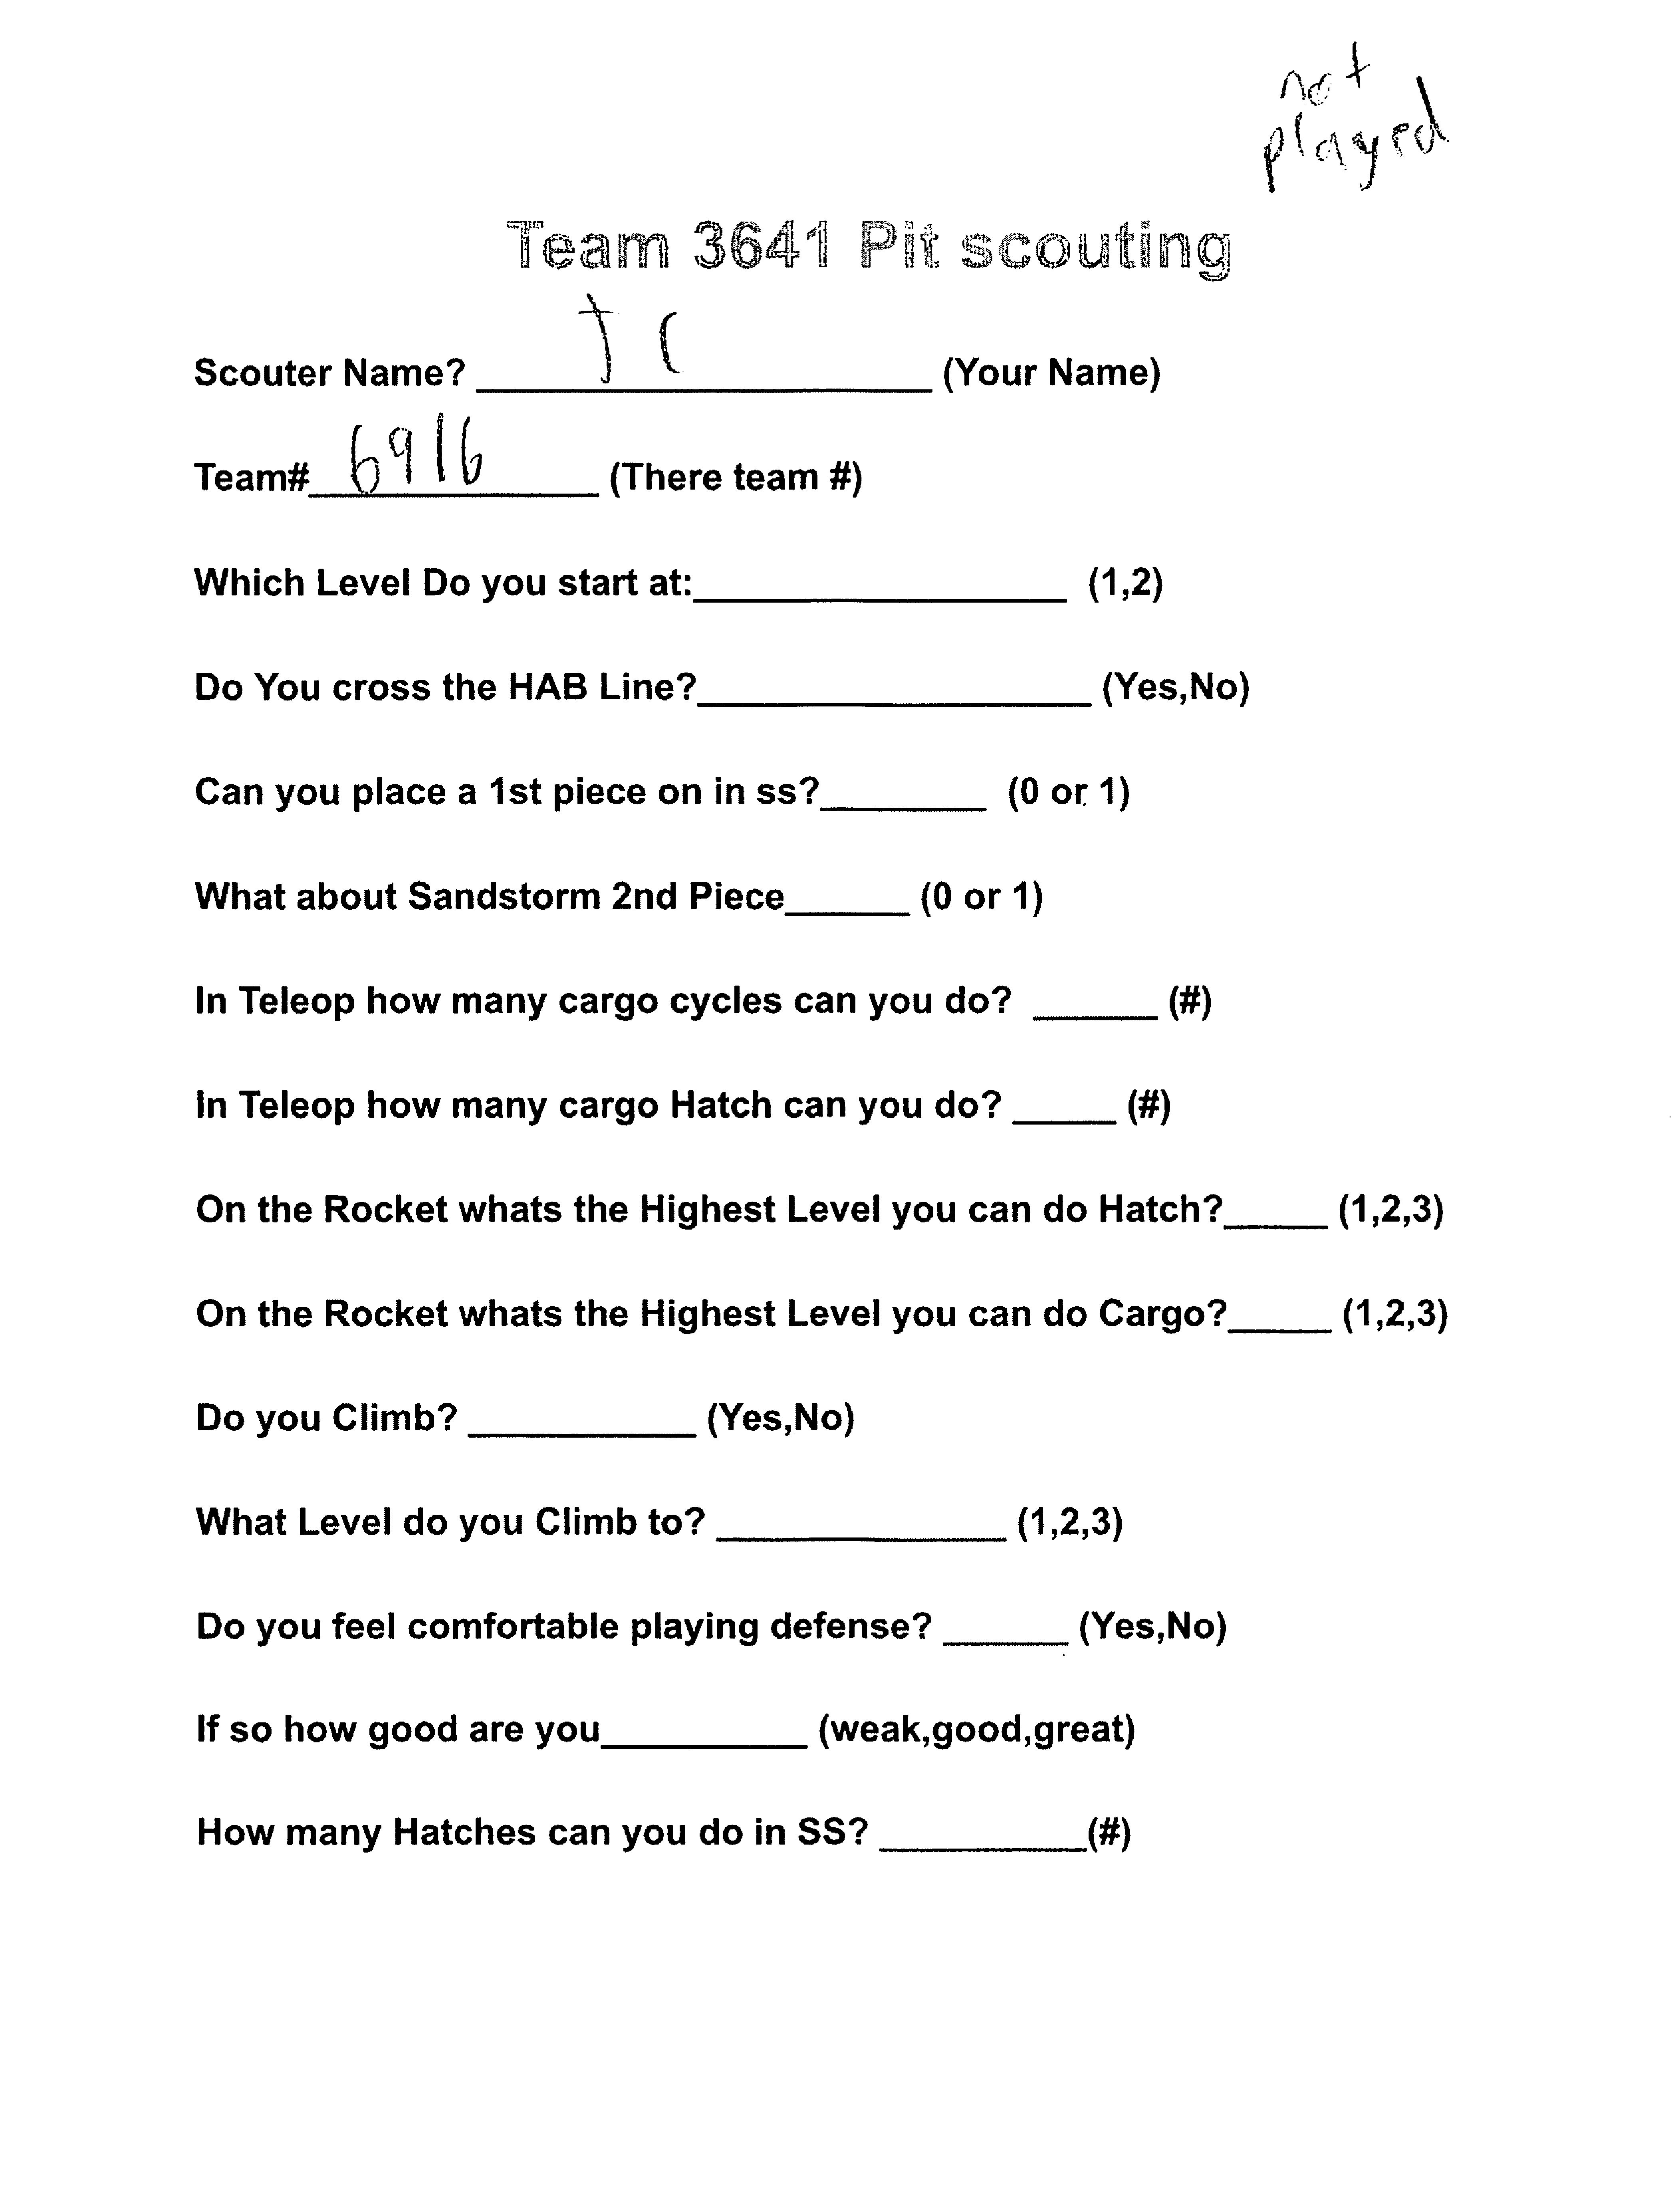 not
played
Team 3641 Pit scouting
Scouter Name? JC (Your Name)
Team# 6916 (There team #)
Which Level Do you start at:__________________ (1,2)
Do You cross the HAB Line?___________________ (Yes,No)
Can you place a 1st piece on in ss?________ (0 or 1)
What about Sandstorm 2nd Piece______ (0 or 1)
In Teleop how many cargo cycles can you do? ______ (#)
In Teleop how many cargo Hatch can you do? _____ (#)
On the Rocket whats the Highest Level you can do Hatch?_____ (1,2,3)
On the Rocket whats the Highest Level you can do Cargo?_____ (1,2,3)
Do you Climb? ___________ (Yes,No)
What Level do you Climb to? ______________ (1,2,3)
Do you feel comfortable playing defense? ______ (Yes,No)
If so how good are you__________ (weak,good,great)
How many Hatches can you do in SS? __________(#)